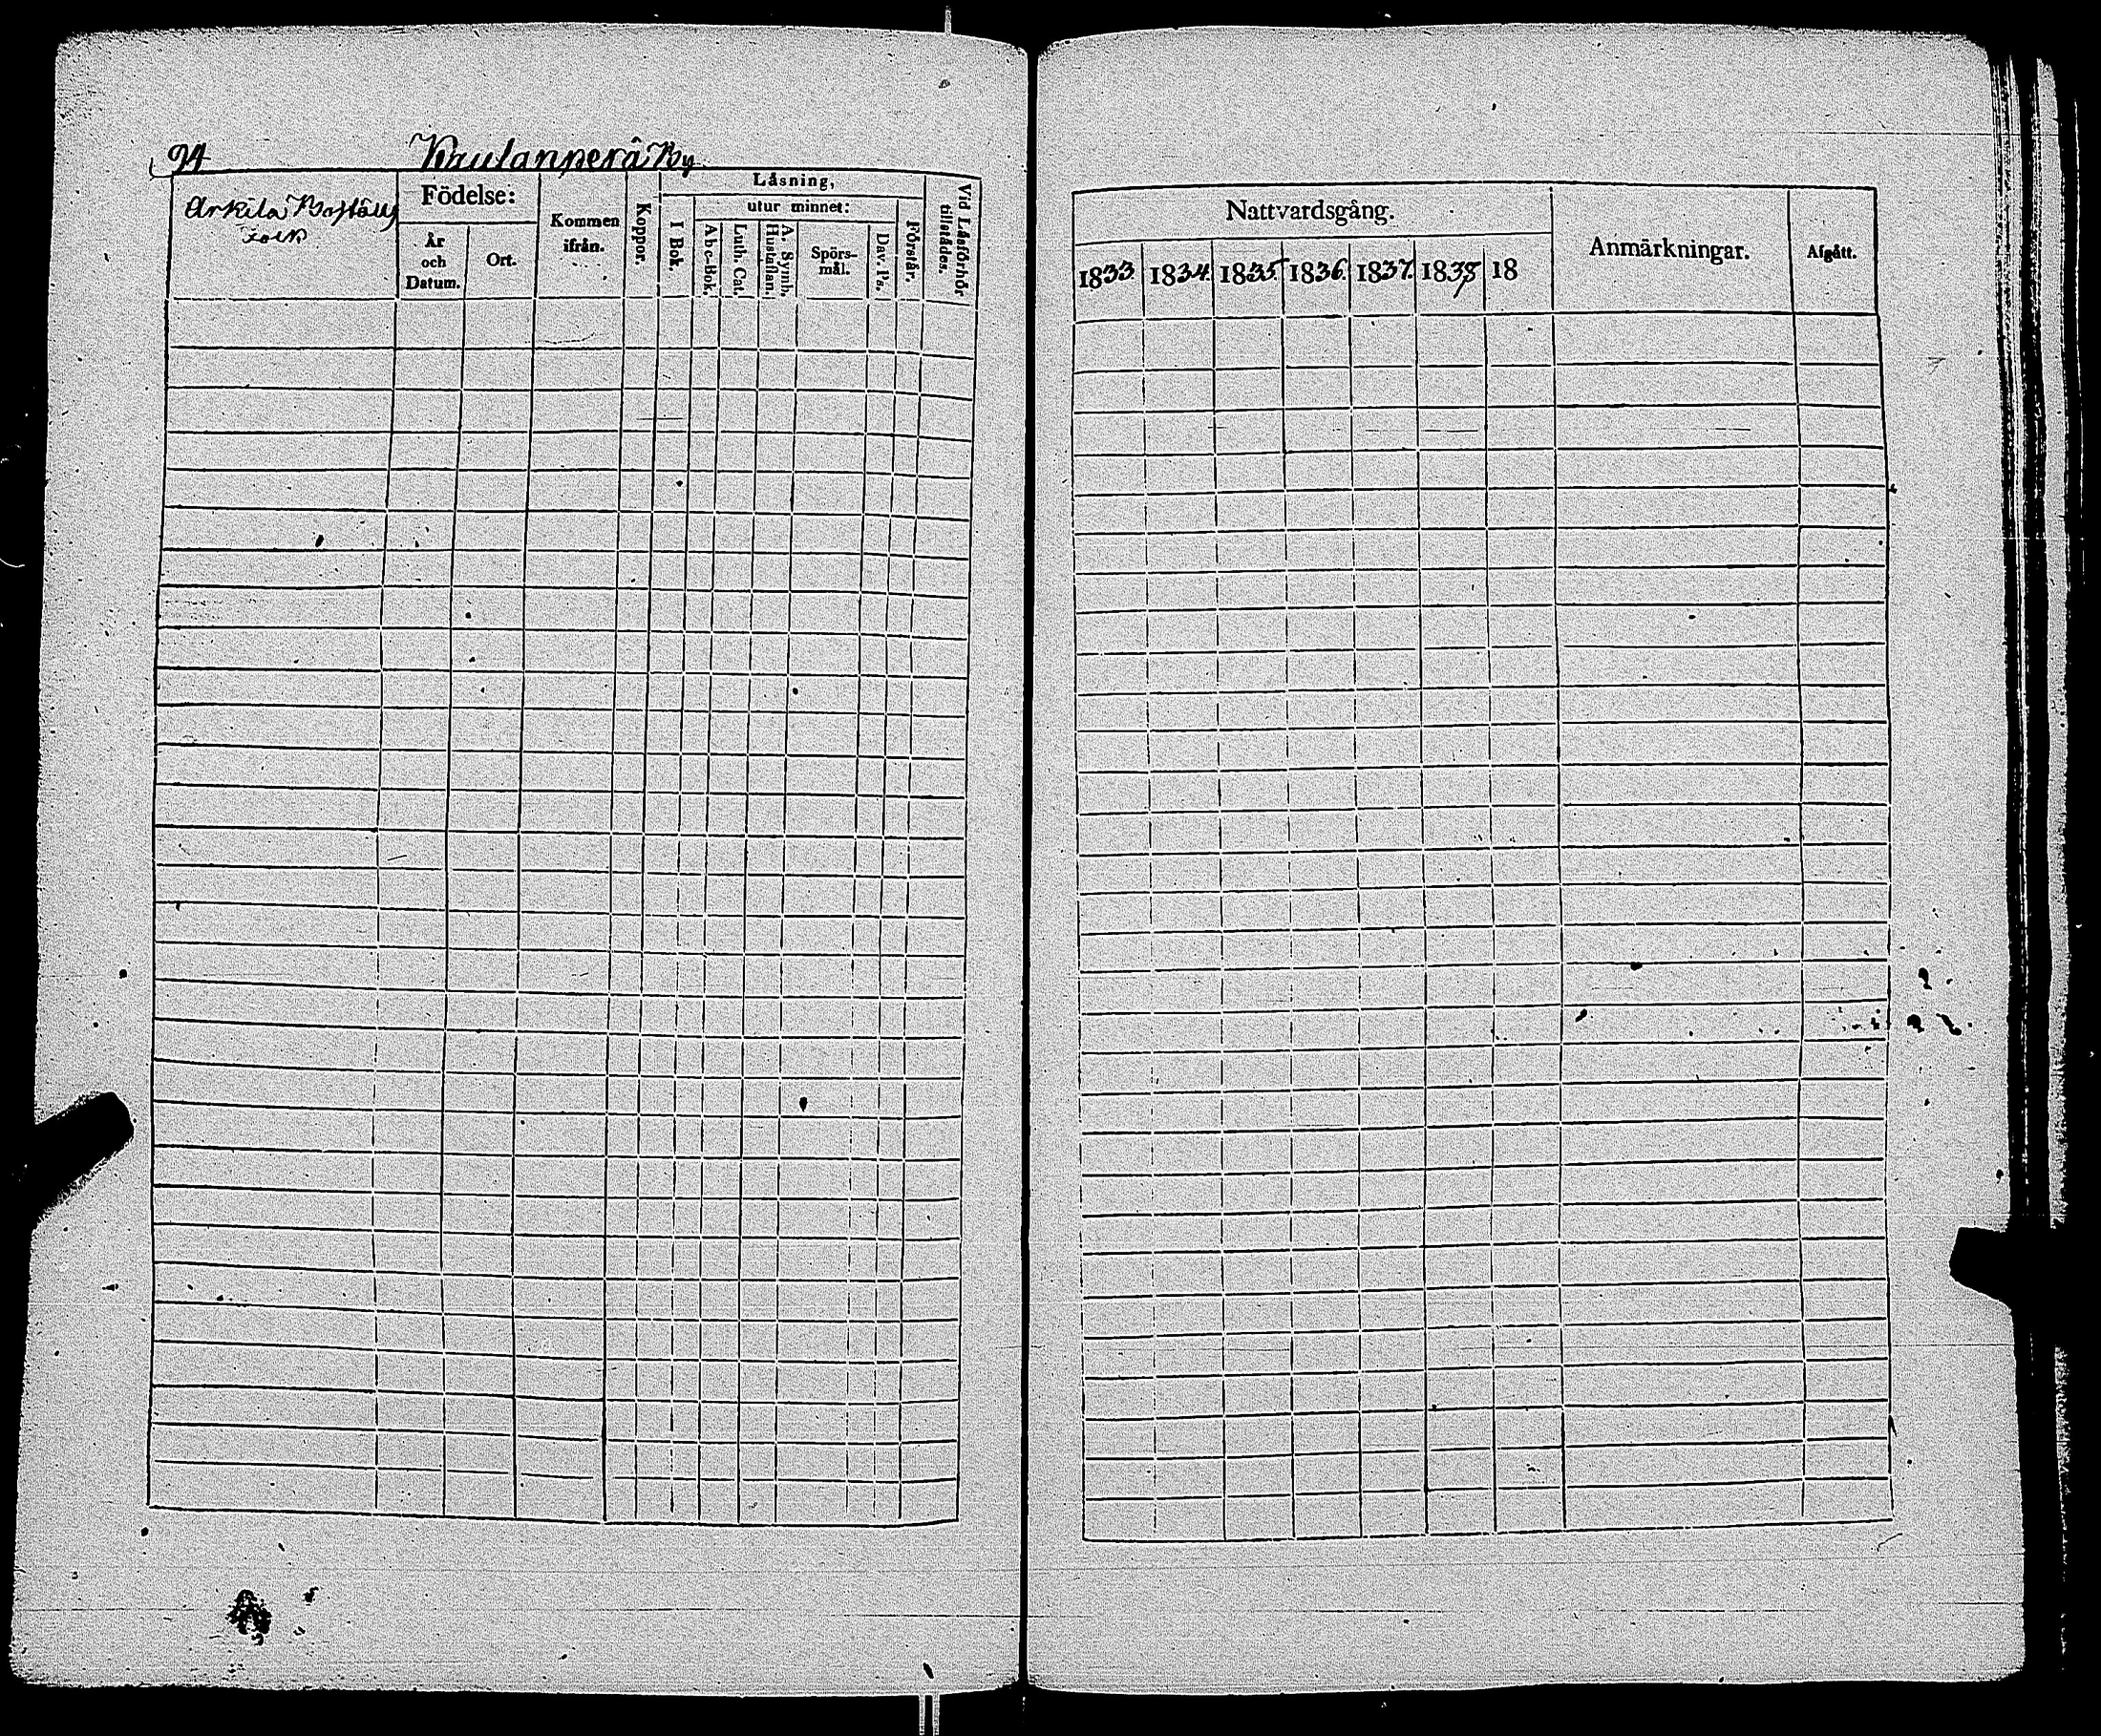 94
Krulanperä By
Arkila Boställs
Folk
Födelse:
År
och
Datum.
Ort.
Kommen
ifrån.
Koppor.
Läsning,
I Bok.
utur minnet:
Abc-Bok.
Luth. Cat.
A. Symb.
Hustaflan.
Spörs-
mål.
Dav. Ps.
Förstår.
Vid Läsförhör
tillstädes.
Nattvardsgång.
1833 1834. 1835. 1836. 1837. 1838 18
Anmärkningar.
Afgått.